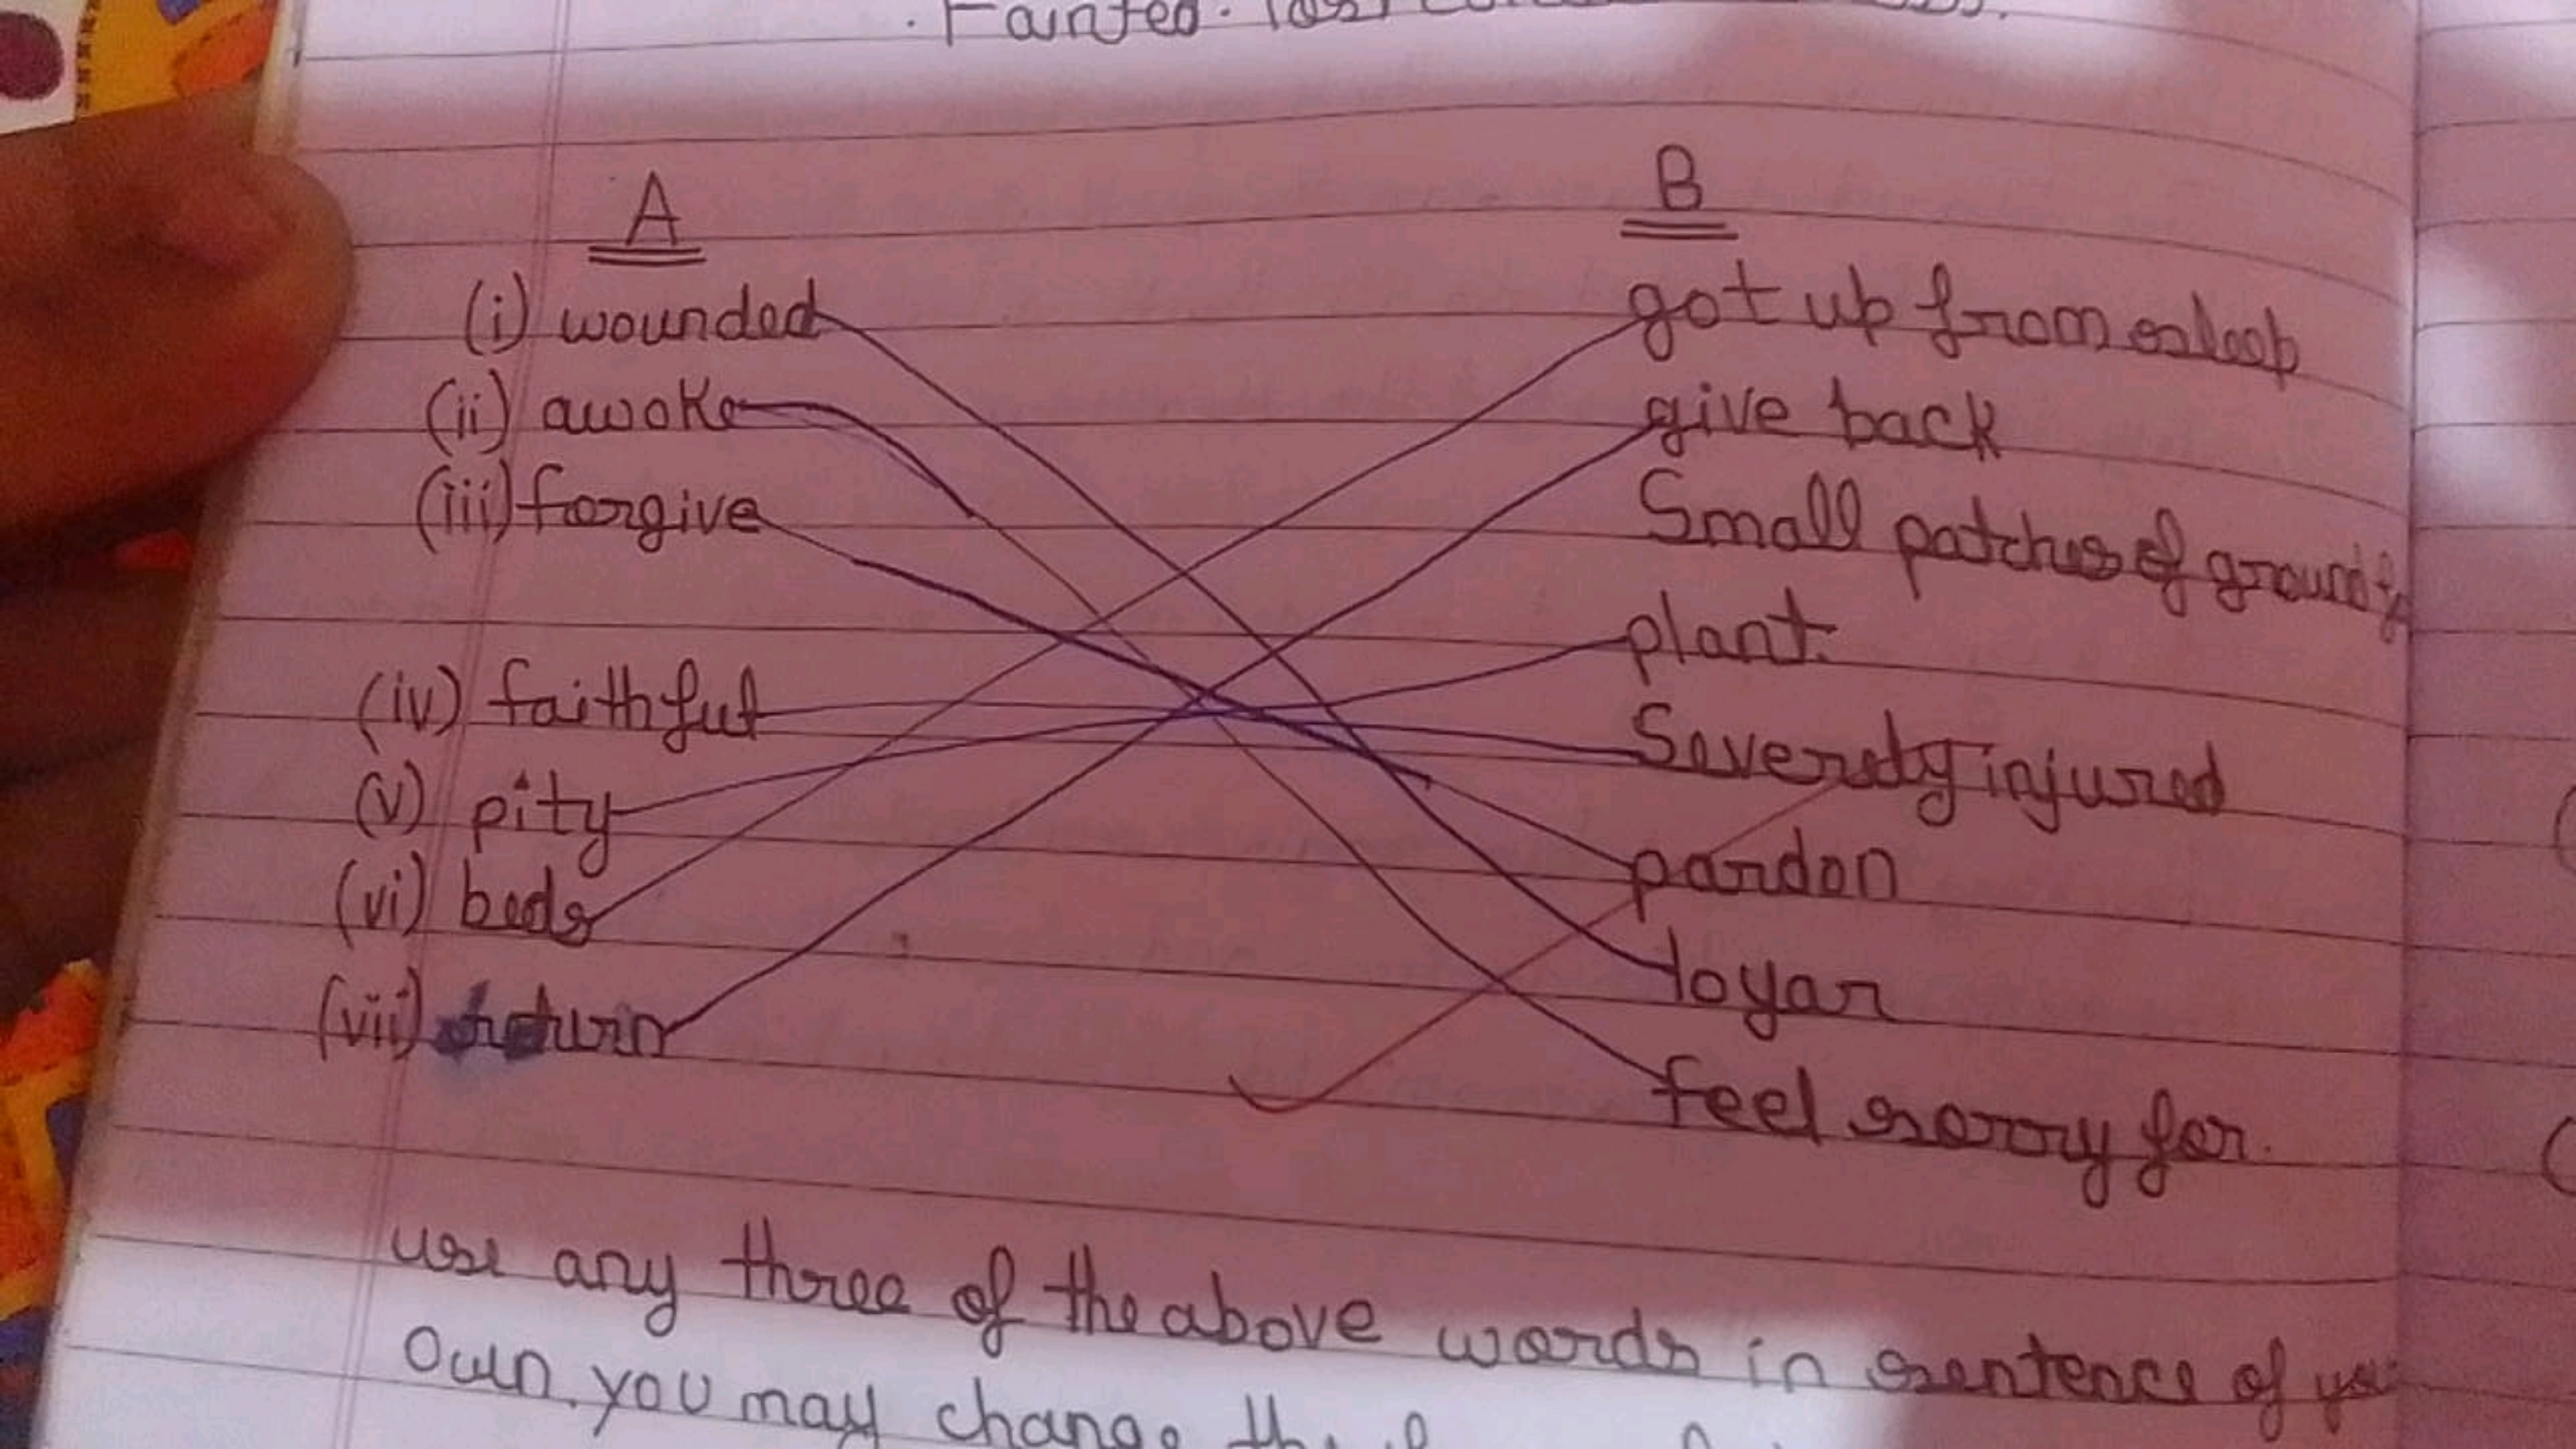 . Fainted. lost
A B
(i) wounded got up from asleep
(ii) awoke give back
(iii) forgive Small patches of ground
plant.
(iv) faithful Severely injured
(v) pity pardon
(vi) beds loyar
(vii) return feel sorry for.
use any three of the above words in sentence of
own. you may change the